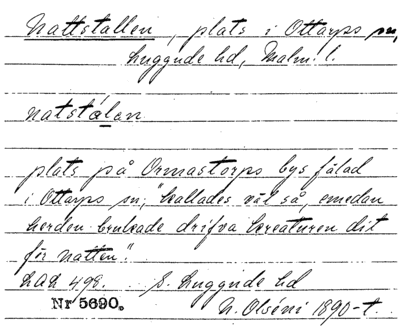 Nattstallen, plats i Ottarps sn,
Luggude hd, Malm. l.
natstálan
plats på Ormastorps bys fälad
i Ottarps sn; "kallades väl så, emedan
herden brukade drifva kreaturen dit
för natten".
LAL 498. S. Luggude hd
Nr 5690. N. Olséni 1890-t.